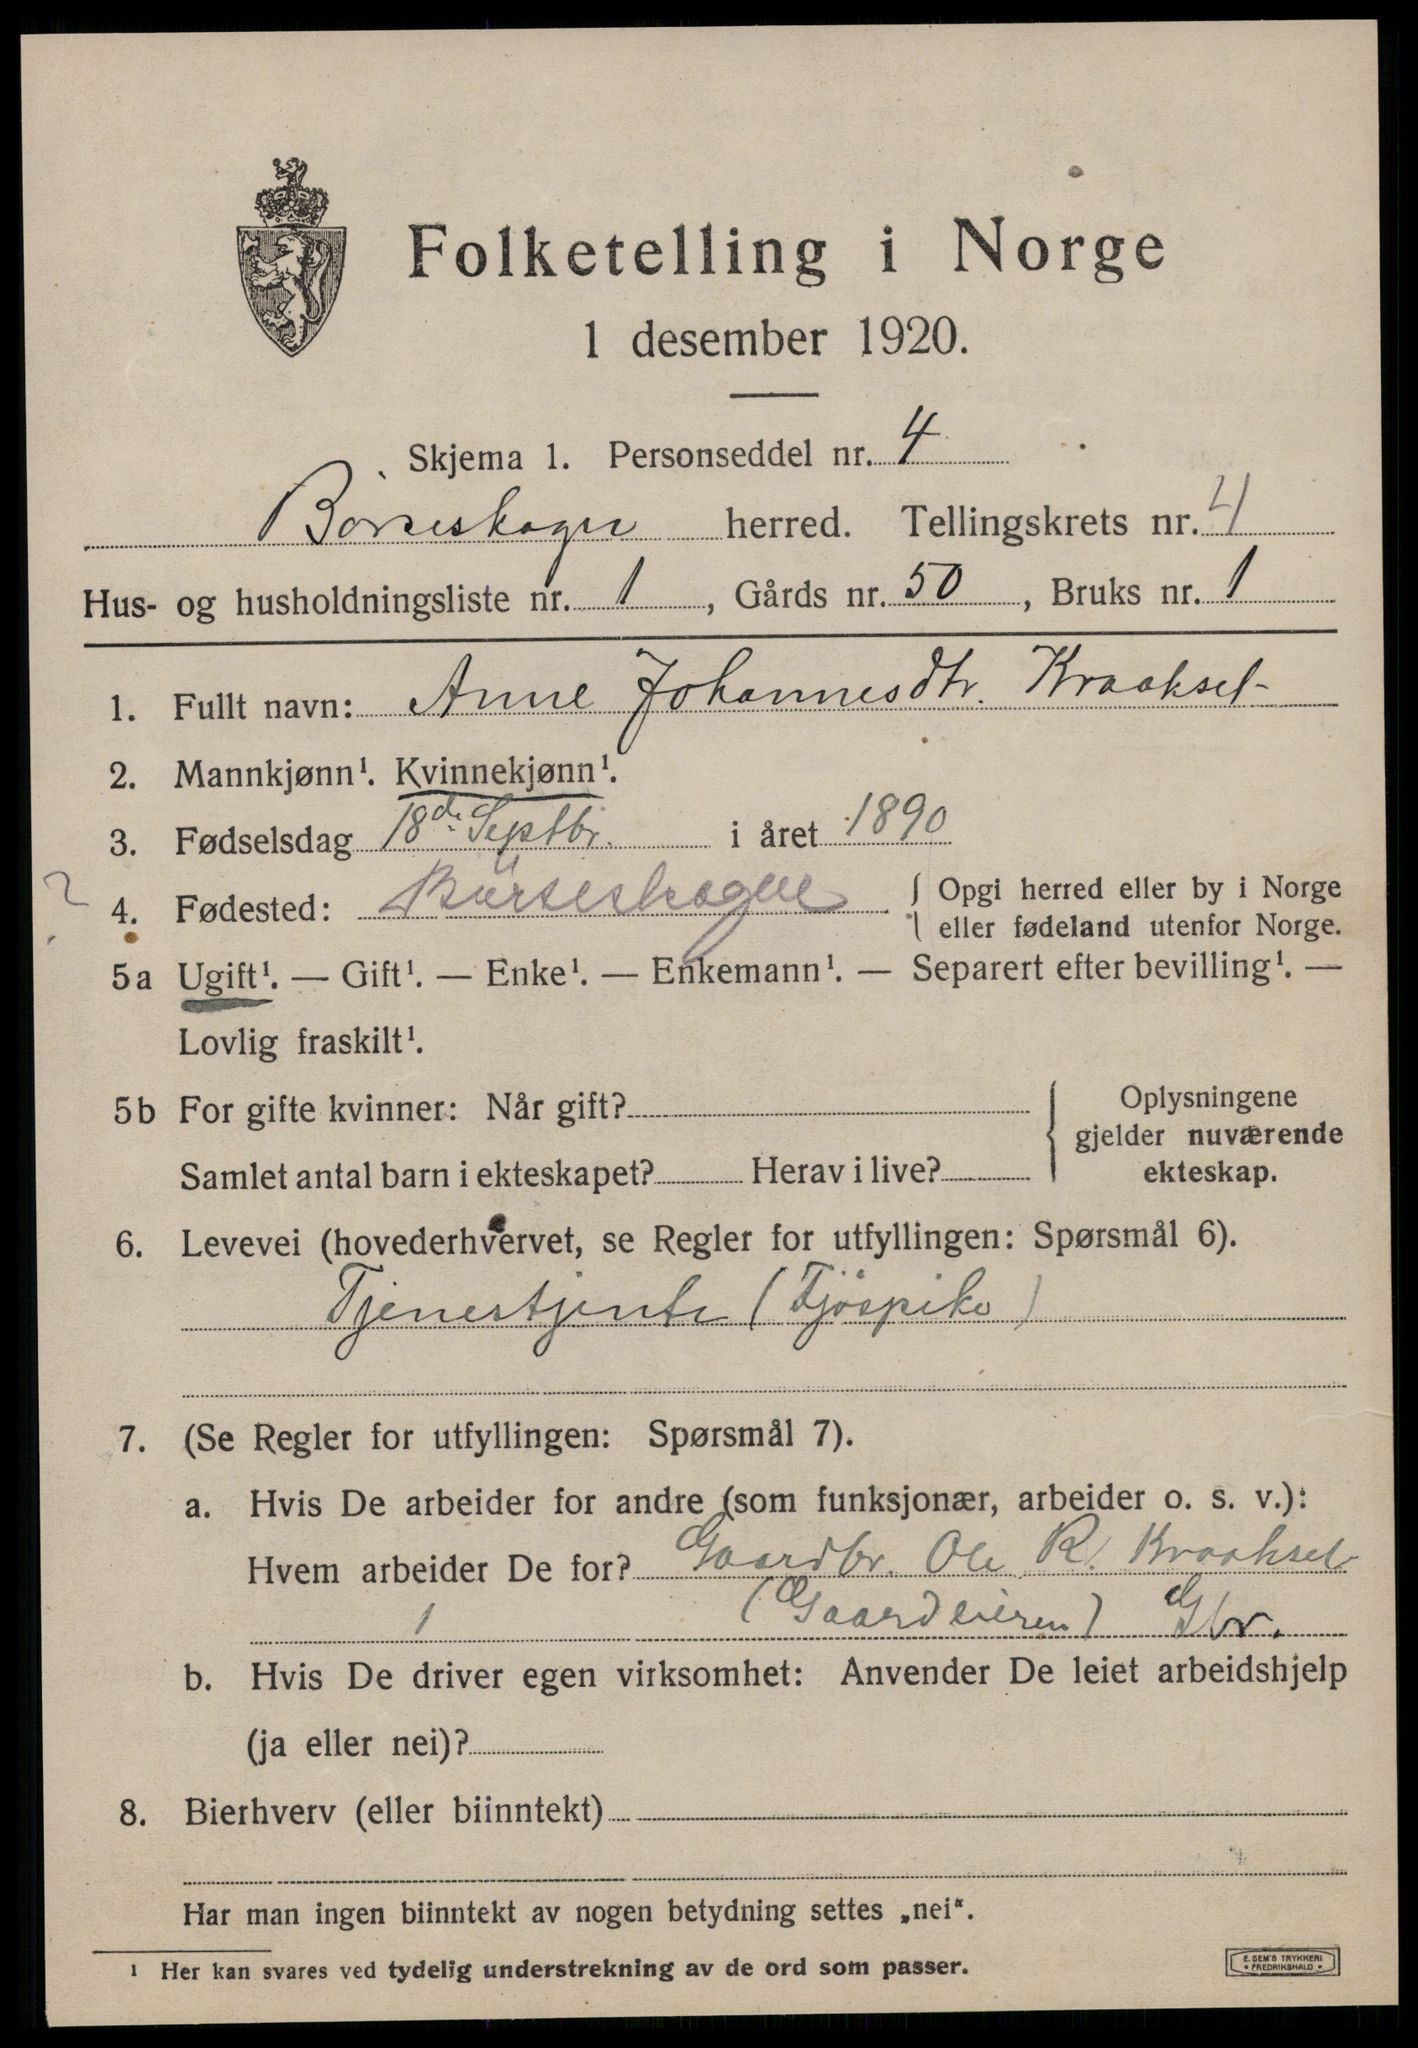 Folketelling i Norge
1 desember 1920.
Skjema 1. Personseddel nr. 4
Børseskogn herred. Tellingskrets nr. 4
Hus- og husholdningsliste nr. 1, Gårds nr. 50, Bruks nr. 1
1. Fullt navn: Anne Johannesdtr. Kraaksel
2. Mannkjønn¹. Kvinnekjønn¹.
3. Fødselsdag 18de Septbr. i året 1890
? 4. Fødested: Börseskogne { Opgi herred eller by i Norge
eller fødeland utenfor Norge.
5a Ugift¹. — Gift¹. — Enke¹. — Enkemann¹. — Separert efter bevilling¹. —
Lovlig fraskilt¹.
5b For gifte kvinner: Når gift?
Samlet antal barn i ekteskapet? Herav i live?
Oplysningene
gjelder nuværende
ekteskap.
6. Levevei (hovederhvervet, se Regler for utfyllingen: Spørsmål 6).
Tjenestjente (Fjöspike)
7. (Se Regler for utfyllingen: Spørsmål 7).
a. Hvis De arbeider for andre (som funksjonær, arbeider o. s. v.):
Hvem arbeider De for? Gaardbr. Ole R. Kraaksel
1 (Gaardeieren) Gbr.
b. Hvis De driver egen virksomhet: Anvender De leiet arbeidshjelp
(ja eller nei)?
8. Bierhverv (eller biinntekt)
Har man ingen biinntekt av nogen betydning settes „nei".
¹ Her kan svares ved tydelig understrekning av de ord som passer.
E. SEM'S TRYKKERI
• FREDRIKSHALD •